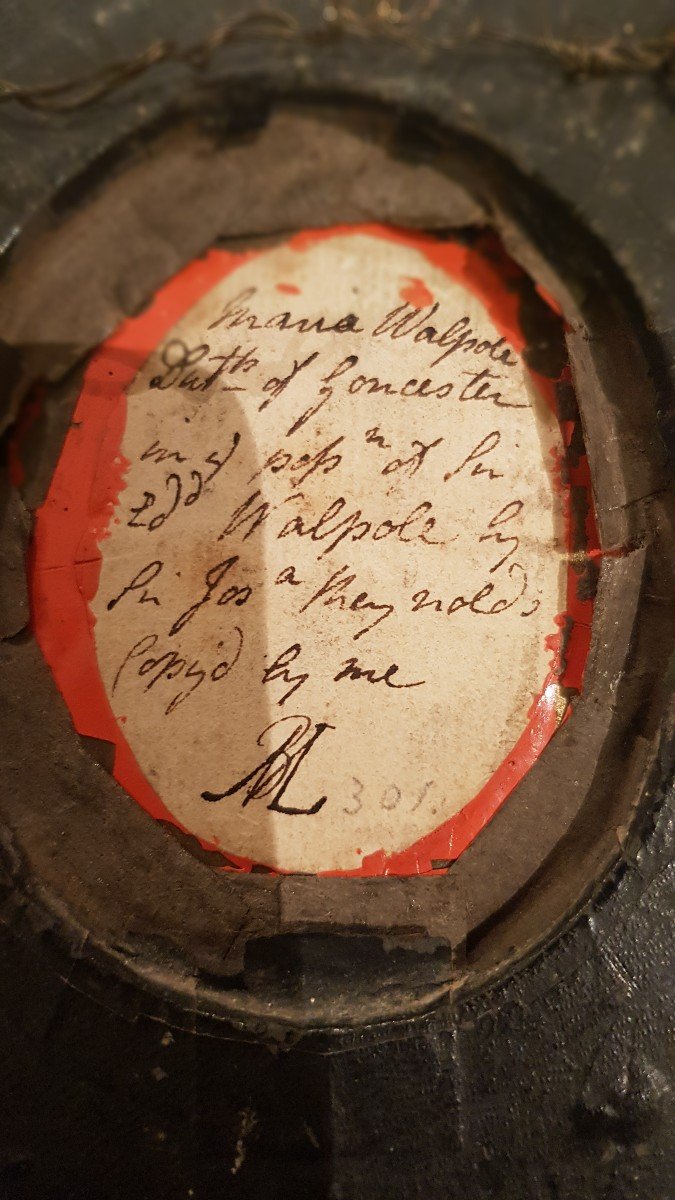 Maria Walpole
Dutss of Gloucester
in ye possn of Sir
Edd Walpole by
Sir Josa Reynolds
Copy'd by me
301.